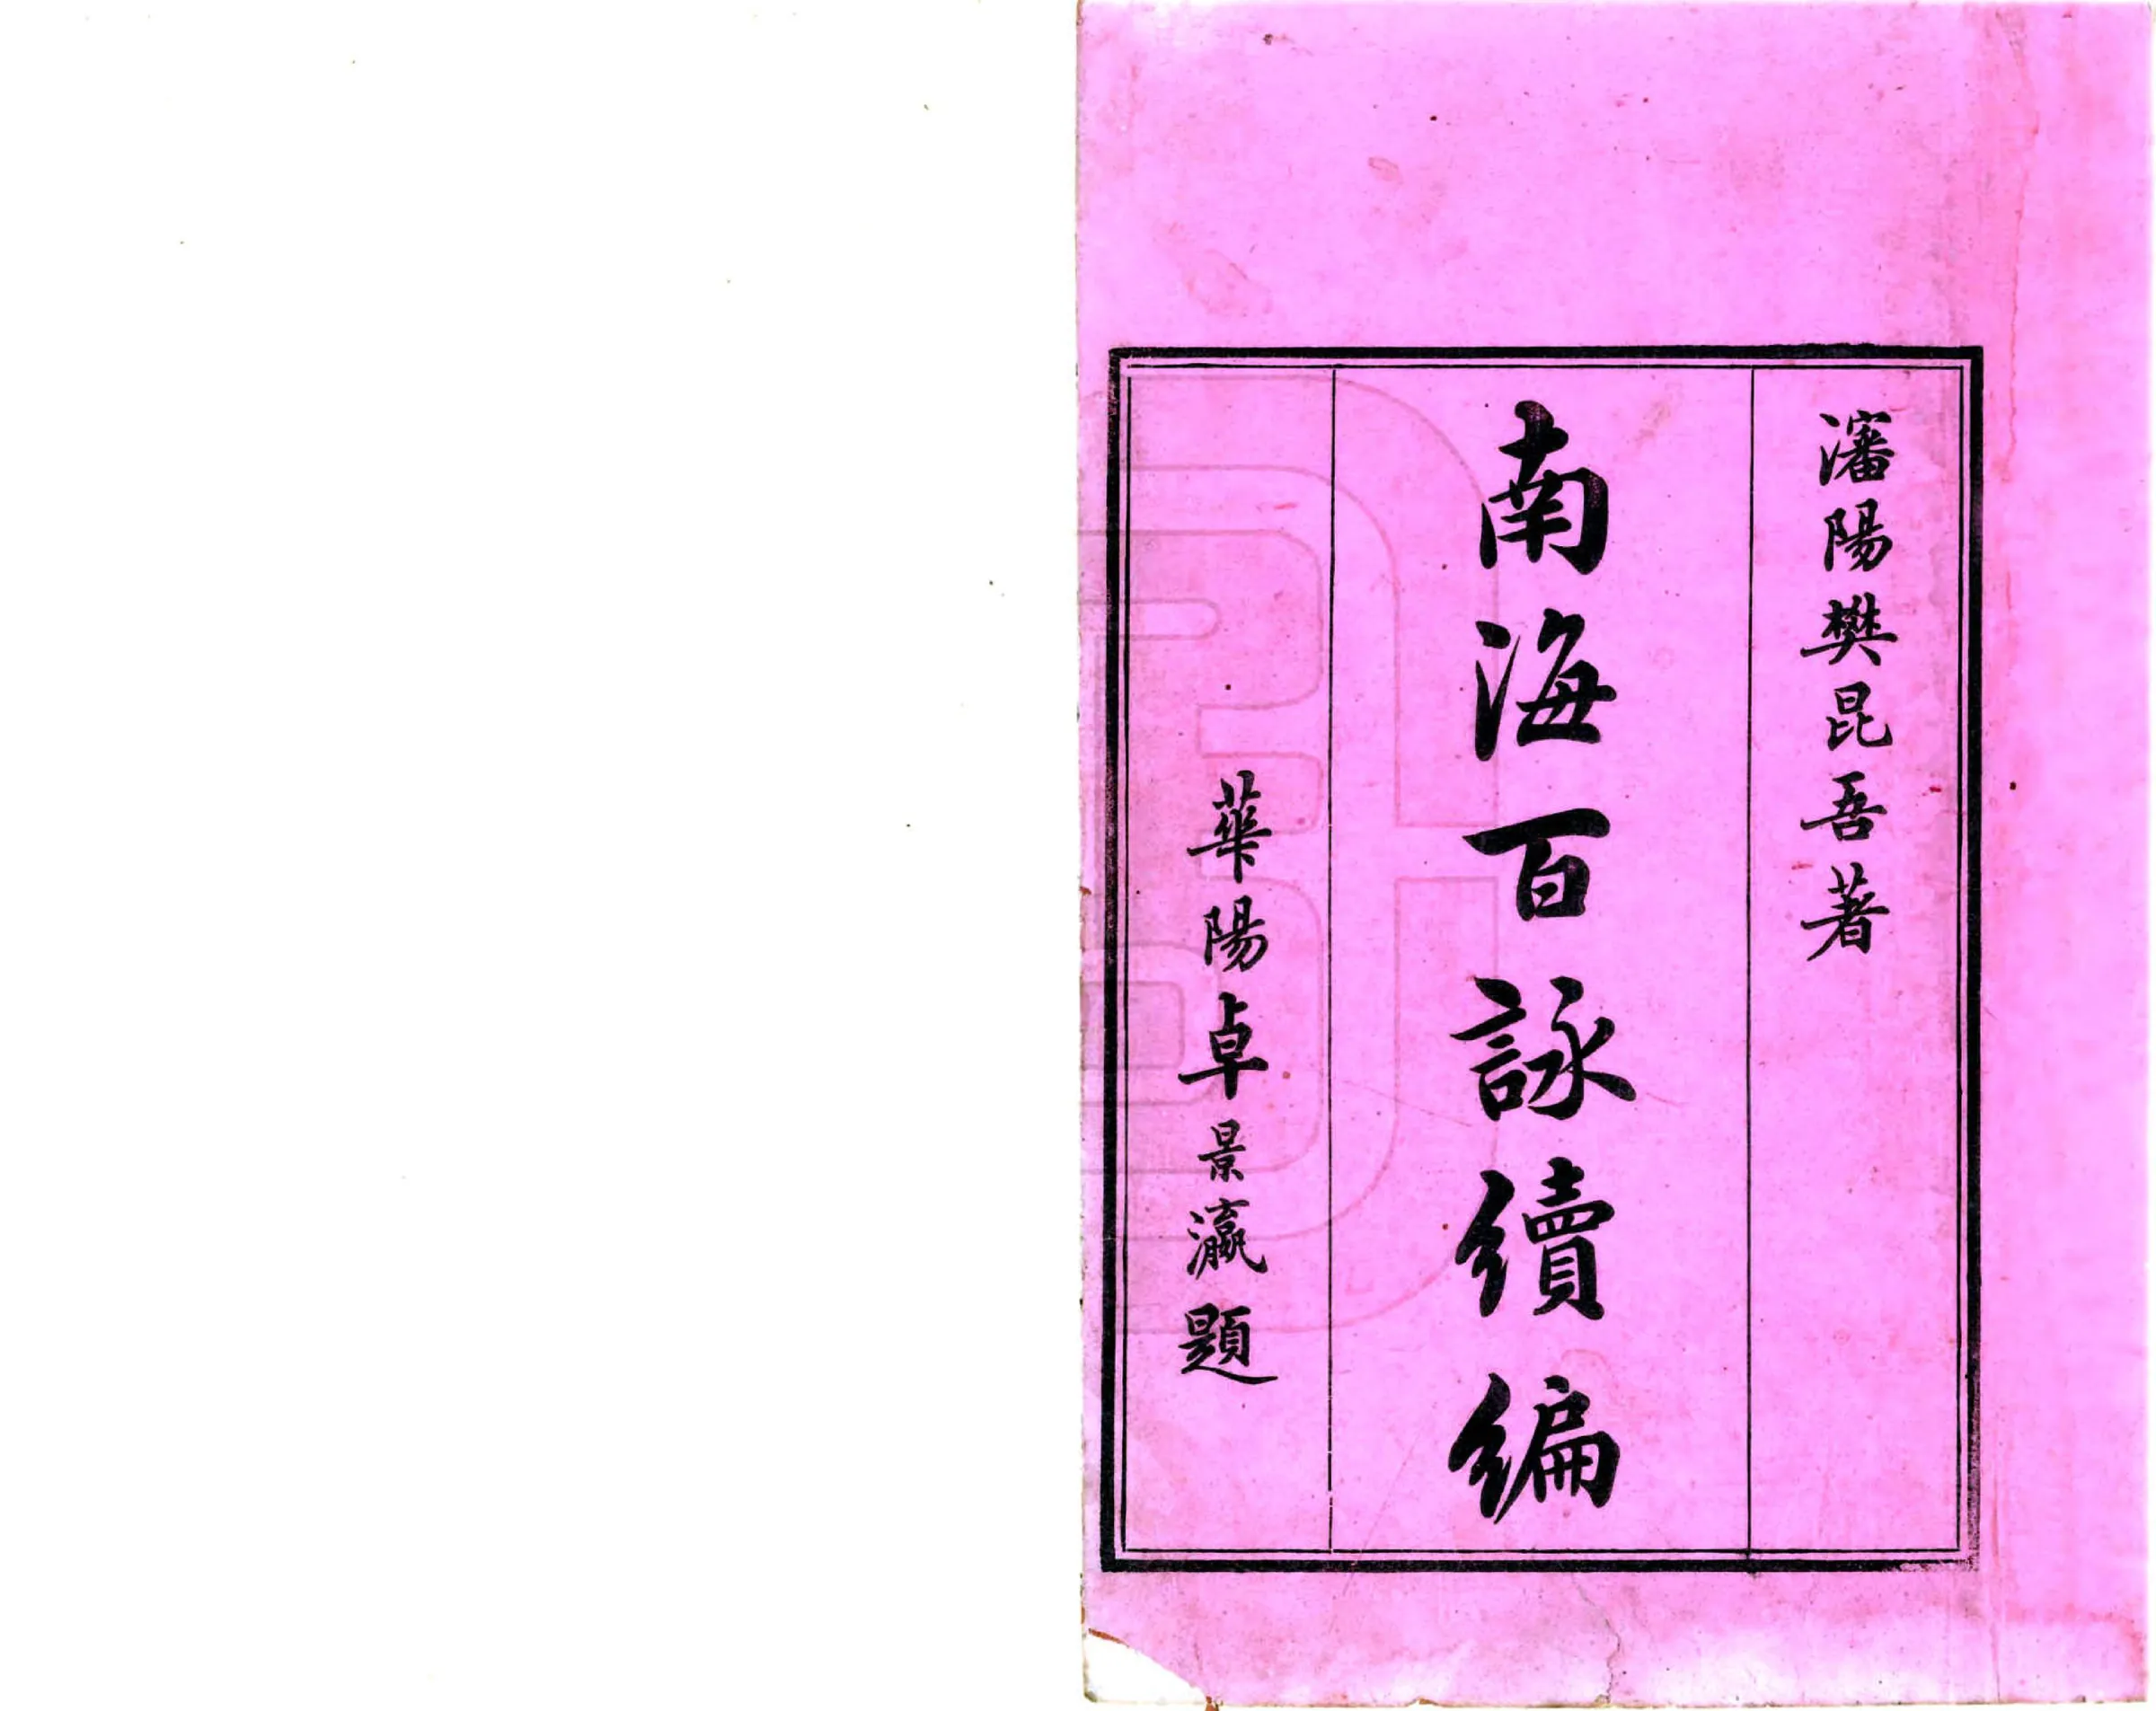 瀋陽樊昆吾著
南海百詠續編
華陽卓景瀛題